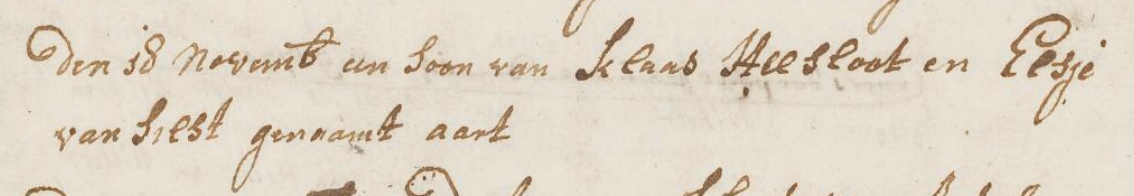 den 18 Novemb een soon van Klaas Heesloot en Elsje
van Silst genaamt aart